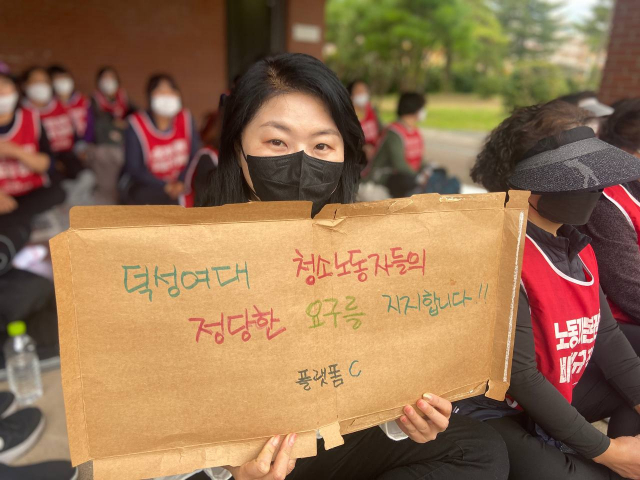 덕성여대 청소노동자들의
정당한 요구를 지지합니다!!
플랫폼 C